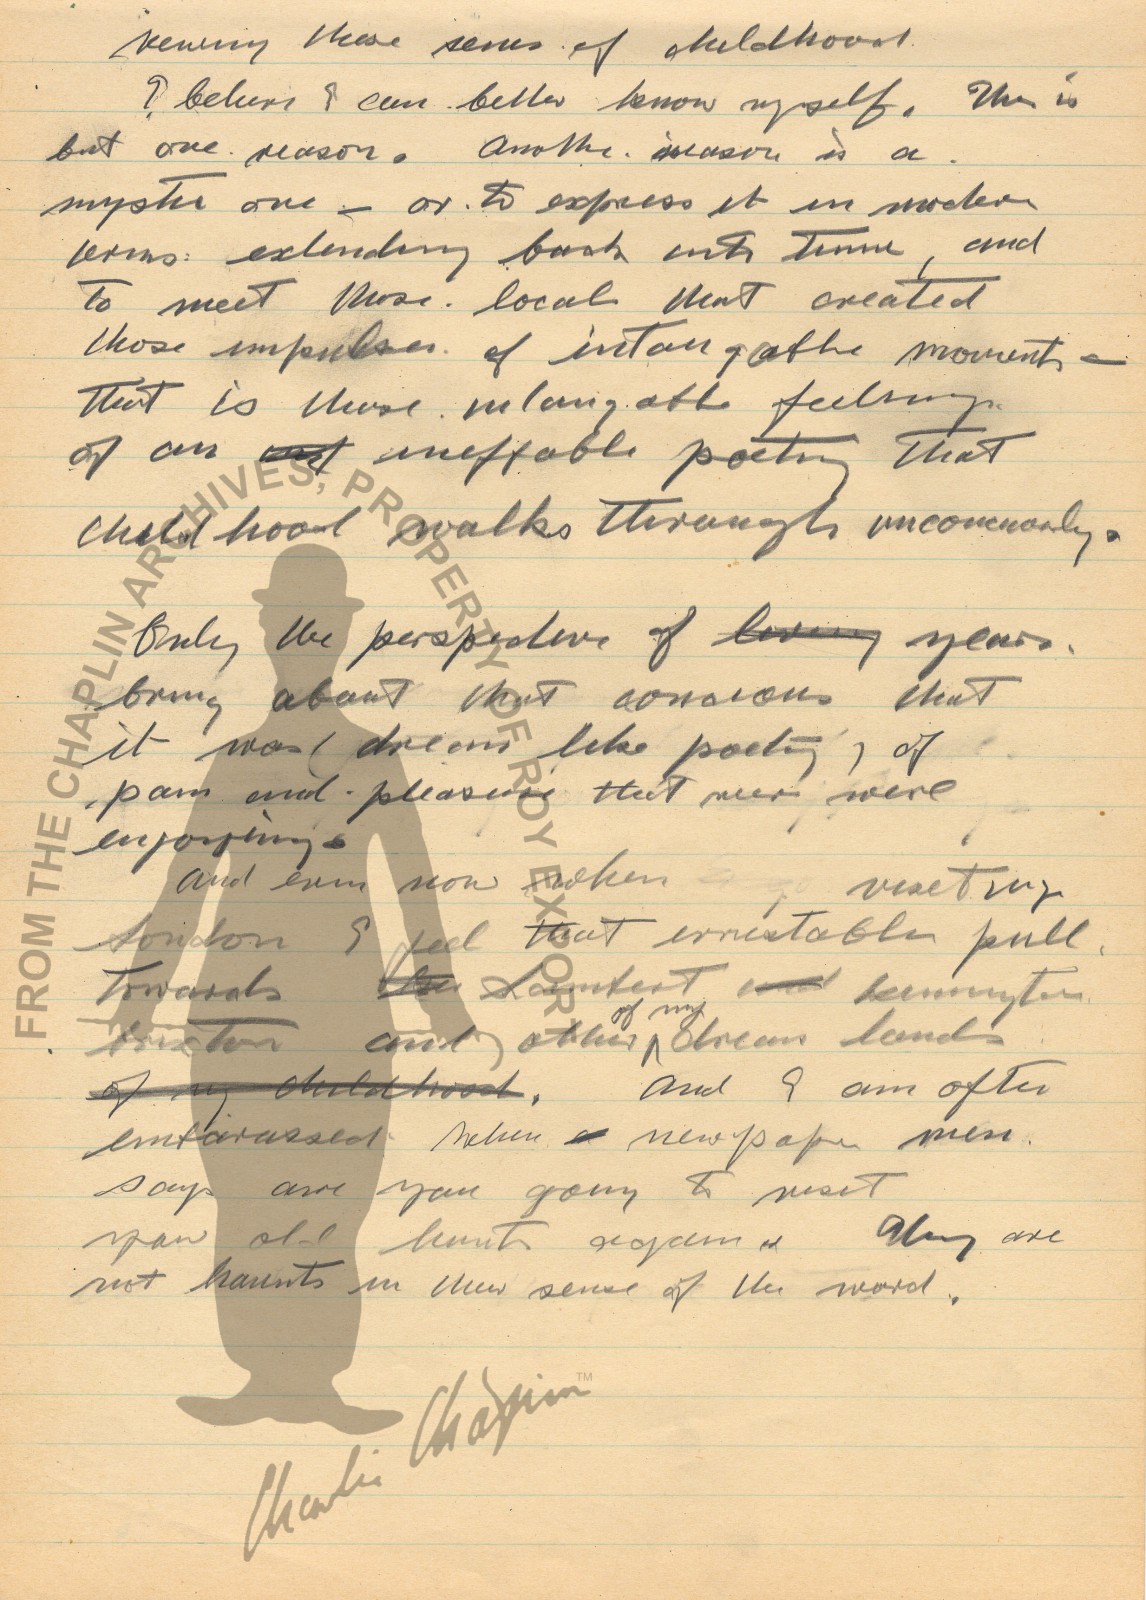 viewing these senes of childhood.
I believe I can better know myself. This is
but one reason. Another reason is a
mystic one — or to express it in modern
terms: extending back into time, and
to meet those locals that created
those impulses of intangable moments —
that is those intangable feelings
of an ineffable poetry that
childhood walks through unconsciously.
Only the perspective of loving years
bring about that conscious that
it was (dream like poetry, of
pain and pleasure that were
enjoying.
And even now when visiting
London I feel that irrestable pull
towards the Lambert and Kennington
Brixton and other of my dream lands
of my childhood. And I am often
embarassed when a newspaper men
says are you going to visit
your old haunts again. They are
not haunts in their sense of the word.
FROM THE CHAPLIN ARCHIVES, PROPERTY OF ROY EXPORT
Charlie Chaplin™